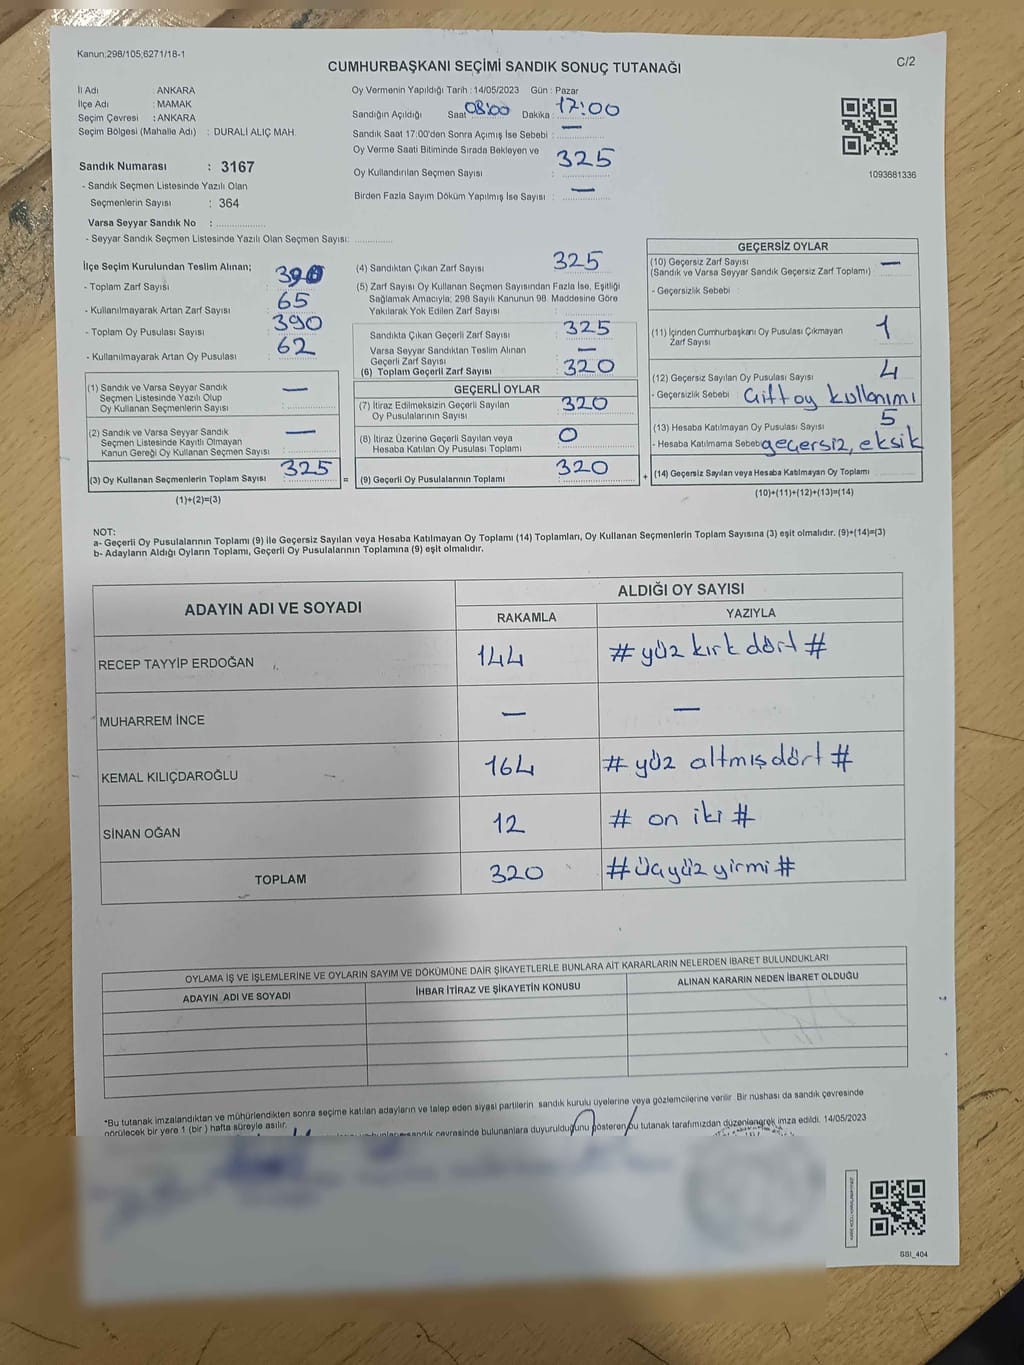 Kanun:298/105,6271/18-1
C/2
CUMHURBAŞKANI SEÇİMİ SANDIK SONUÇ TUTANAĞI
İl Adı : ANKARA
İlçe Adı : MAMAK
Seçim Çevresi : ANKARA
Seçim Bölgesi (Mahalle Adı) : DURALİ ALIÇ MAH.
Sandık Numarası : 3167
- Sandık Seçmen Listesinde Yazılı Olan
Seçmenlerin Sayısı : 364
Varsa Seyyar Sandık No :
- Seyyar Sandık Seçmen Listesinde Yazılı Olan Seçmen Sayısı:
Oy Vermenin Yapıldığı Tarih : 14/05/2023 Gün : Pazar
Sandığın Açıldığı Saat 08:00 Dakika : 17:00
Sandık Saat 17:00'den Sonra Açımış İse Sebebi : —
Oy Verme Saati Bitiminde Sırada Bekleyen ve
Oy Kullandırılan Seçmen Sayısı : 325
Birden Fazla Sayım Döküm Yapılmış İse Sayısı : —
1093681336
İlçe Seçim Kurulundan Teslim Alınan;
- Toplam Zarf Sayısı : 390
- Kullanılmayarak Artan Zarf Sayısı : 65
- Toplam Oy Pusulası Sayısı : 390
- Kullanılmayarak Artan Oy Pusulası : 62
(1) Sandık ve Varsa Seyyar Sandık
Seçmen Listesinde Yazılı Olup
Oy Kullanan Seçmenlerin Sayısı : —
(2) Sandık ve Varsa Seyyar Sandık
Seçmen Listesinde Kayıtlı Olmayan
Kanun Gereği Oy Kullanan Seçmen Sayısı : —
(3) Oy Kullanan Seçmenlerin Toplam Sayısı : 325
(1)+(2)=(3)
(4) Sandıktan Çıkan Zarf Sayısı : 325
(5) Zarf Sayısı Oy Kullanan Seçmen Sayısından Fazla İse, Eşitliği
Sağlamak Amacıyla; 298 Sayılı Kanunun 98. Maddesine Göre
Yakılarak Yok Edilen Zarf Sayısı :
Sandıkta Çıkan Geçerli Zarf Sayısı : 325
Varsa Seyyar Sandıktan Teslim Alınan
Geçerli Zarf Sayısı : —
(6) Toplam Geçerli Zarf Sayısı : 320
GEÇERLİ OYLAR
(7) İtiraz Edilmeksizin Geçerli Sayılan
Oy Pusulalarının Sayısı : 320
(8) İtiraz Üzerine Geçerli Sayılan veya
Hesaba Katılan Oy Pusulası Toplamı : 0
= (9) Geçerli Oy Pusulalarının Toplamı : 320
GEÇERSİZ OYLAR
(10) Geçersiz Zarf Sayısı —
(Sandık ve Varsa Seyyar Sandık Geçersiz Zarf Toplamı) :
- Geçersizlik Sebebi :
(11) İçinden Cumhurbaşkanı Oy Pusulası Çıkmayan
Zarf Sayısı : 1
(12) Geçersiz Sayılan Oy Pusulası Sayısı : 4
- Geçersizlik Sebebi : Çift oy kullanımı
(13) Hesaba Katılmayan Oy Pusulası Sayısı : 5
- Hesaba Katılmama Sebebi: geçersiz, eksik
+ (14) Geçersiz Sayılan veya Hesaba Katılmayan Oy Toplamı :
(10)+(11)+(12)+(13)=(14)
NOT:
a- Geçerli Oy Pusulalarının Toplamı (9) ile Geçersiz Sayılan veya Hesaba Katılmayan Oy Toplamı (14) Toplamları, Oy Kullanan Seçmenlerin Toplam Sayısına (3) eşit olmalıdır. (9)+(14)=(3)
b- Adayların Aldığı Oyların Toplamı, Geçerli Oy Pusulalarının Toplamına (9) eşit olmalıdır.
ADAYIN ADI VE SOYADI
ALDIĞI OY SAYISI
RAKAMLA YAZIYLA
RECEP TAYYİP ERDOĞAN 144 # yüz kırk dört #
MUHARREM İNCE — —
KEMAL KILIÇDAROĞLU 164 # yüz altmış dört #
SİNAN OĞAN 12 # on iki #
TOPLAM 320 # üçyüz yirmi #
OYLAMA İŞ VE İŞLEMLERİNE VE OYLARIN SAYIM VE DÖKÜMÜNE DAİR ŞİKAYETLERLE BUNLARA AİT KARARLARIN NELERDEN İBARET BULUNDUKLARI
ADAYIN ADI VE SOYADI İHBAR İTİRAZ VE ŞİKAYETİN KONUSU ALINAN KARARIN NEDEN İBARET OLDUĞU
*Bu tutanak imzalandıktan ve mühürlendikten sonra seçime katılan adayların ve talep eden siyasi partilerin sandık kurulu üyelerine veya gözlemcilerine verilir. Bir nüshası da sandık çevresinde
görülecek bir yere 1 (bir) hafta süreyle asılır.
sandık çevresinde bulunanlara duyurulduğunu gösteren bu tutanak tarafımızdan düzenlenerek imza edildi. 14/05/2023
SSI_404